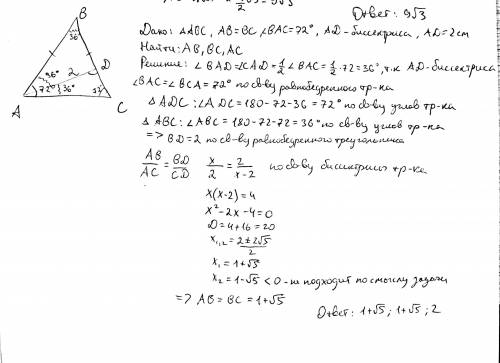 Ответ: 9√3
Дано: ΔABC, AB=BC, ∠BAC=72°, AD-биссектриса, AD=2см
Найти: AB, BC, AC
Решение: ∠BAD=∠CAD=1/2∠BAC=1/2·72=36°, т.к AD-биссектриса
∠BAC=∠BCA=72° по св-ву равнобедренного тр-ка
ΔADC: ∠ADC=180-72-36=72° по св-ву углов тр-ка
ΔABC: ∠ABC=180-72-72=36° по св-ву углов тр-ка
=> BD=2 по св-ву равнобедренного треугольника
AB/AC=BD/CD x/2=2/x-2 по св-ву биссектрисы тр-ка
x(x-2)=4
x²-2x-4=0
D=4+16=20
x₁,₂=2±2√5/2
x₁=1+√5
x₂=1-√5<0-не подходит по смыслу задачи
=> AB=BC=1+√5
Ответ: 1+√5; 1+√5; 2
B
36°
36°
2
D
72°
36°
72°
A
C